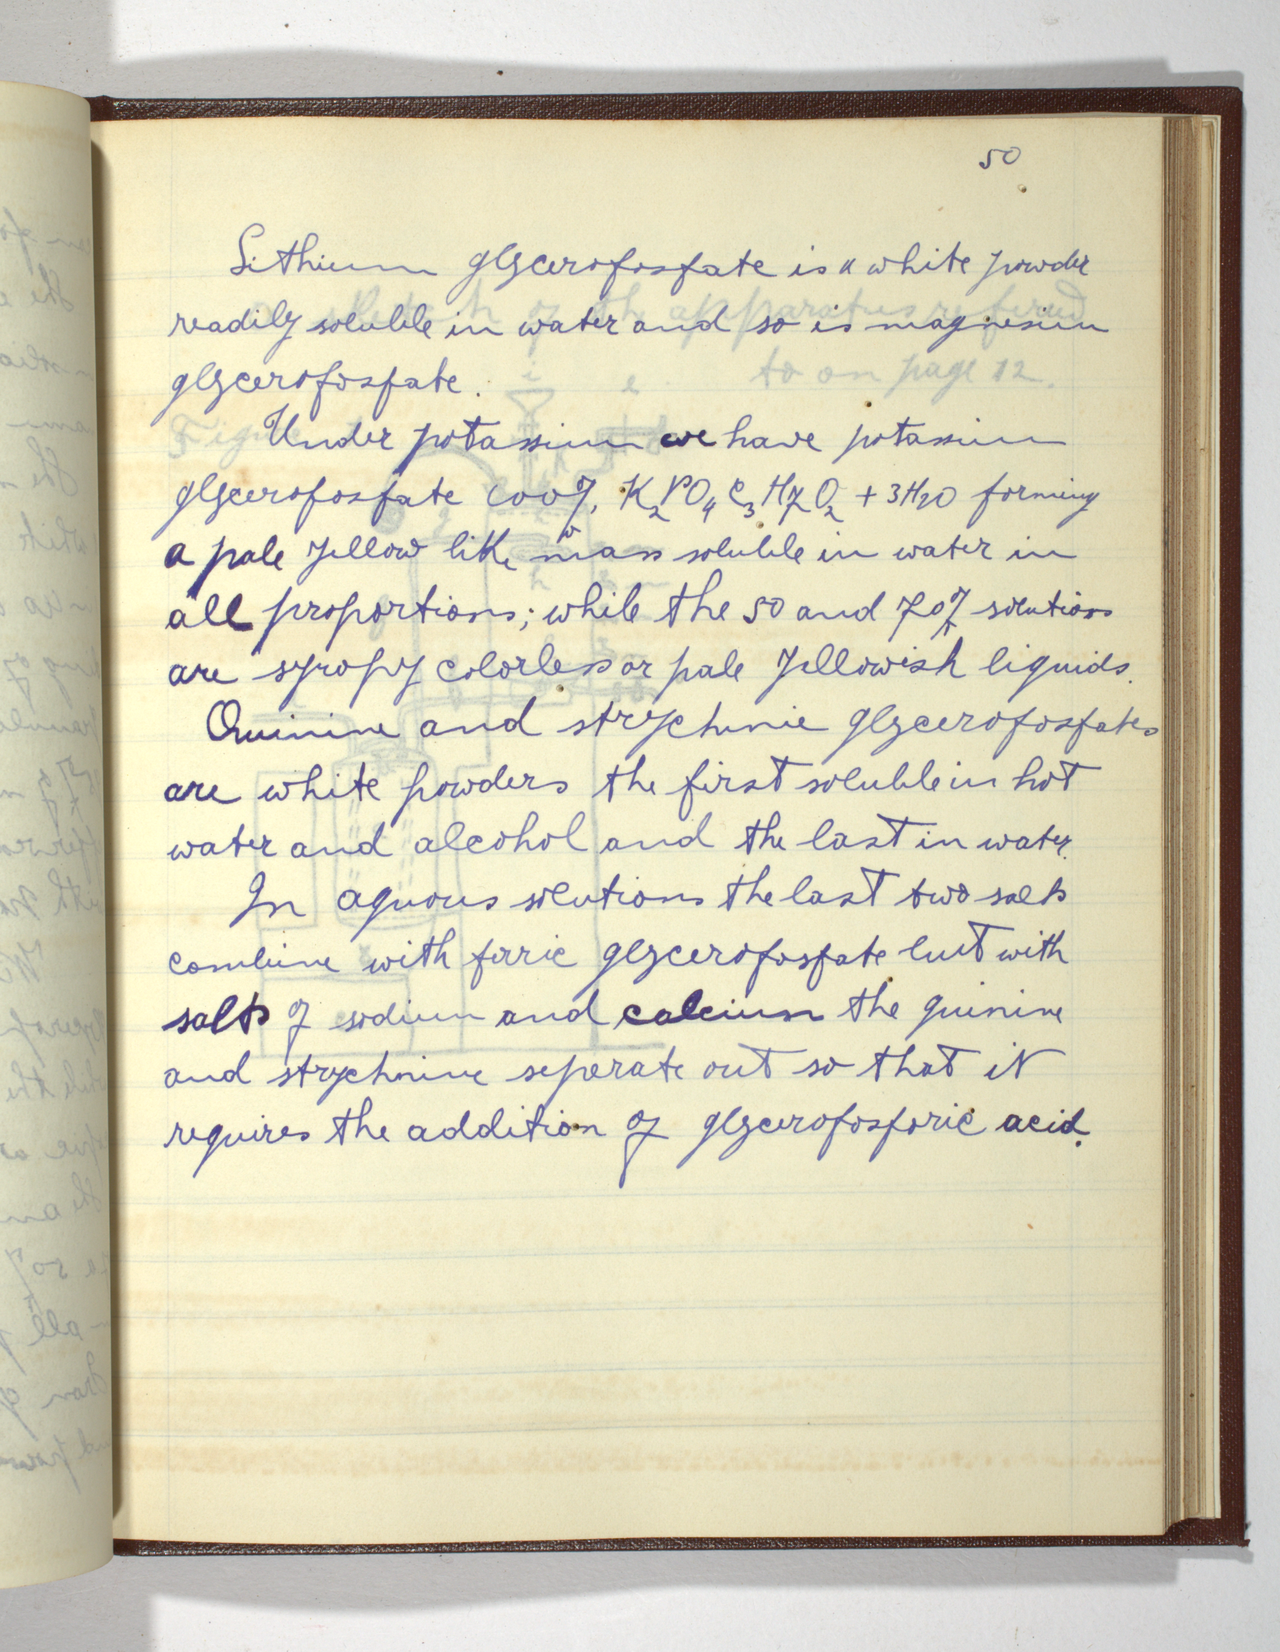 50
Lithium glycerofosfate is a white powder
readily soluble in water and so is magnesium
glycerofosfate.
Under potassium we have potassium
glycerofosfate 100%, K2PO4C3H7O2 + 3H2O forming
a pale yellow like mass soluble in water in
all proportions; while the 50 and 70% solutions
are syropy colorless or pale yellowish liquids.
Quinine and strychnine glycerofosfates
are white powders the first soluble in hot
water and alcohol and the last in water.
In aquous solutions the last two salts
combine with ferric glycerofosfate but with
salts of sodium and calcium the quinine
and strychnine seperate out so that it
requires the addition of glycerofosforic acid.
sketch of the apparatus refered
to on page 12.
Figure